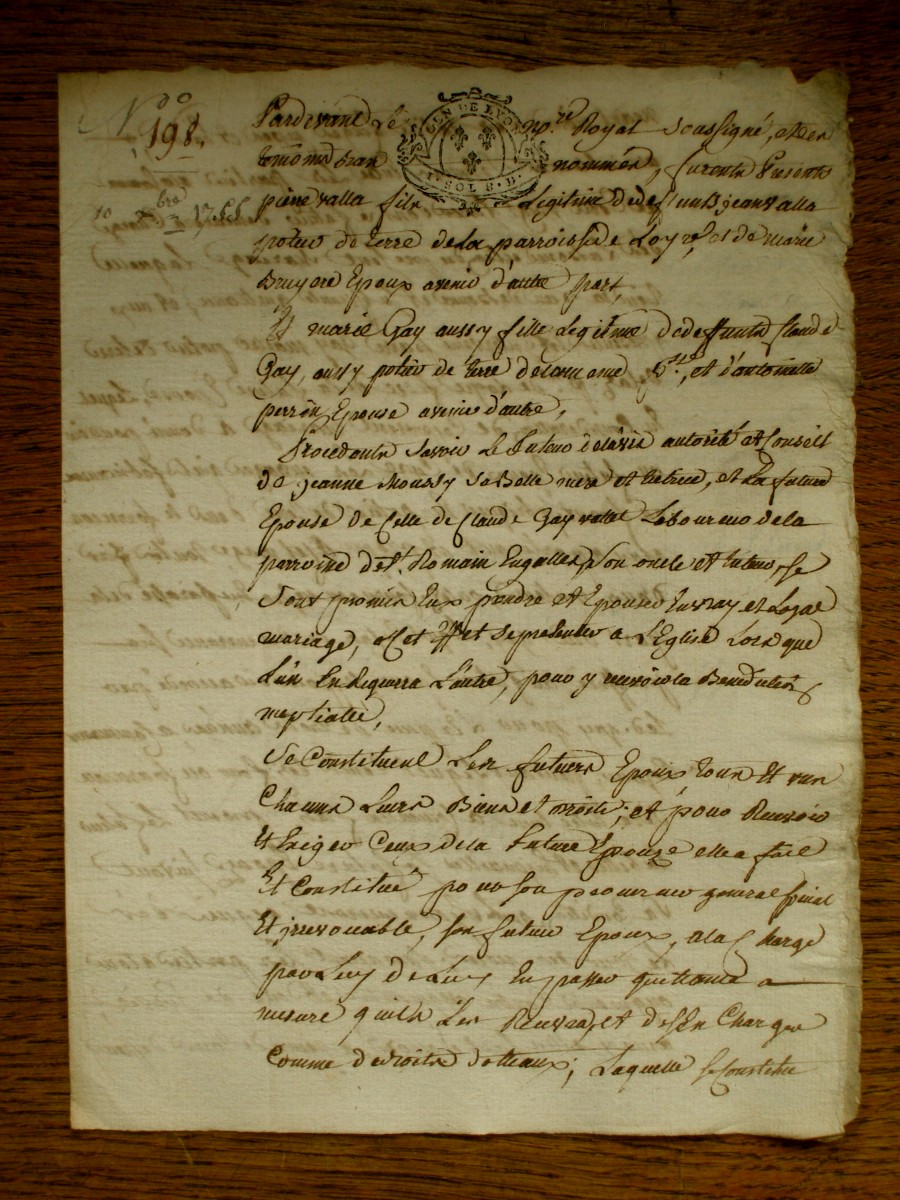 N.o
198.
10 xbre 1768
GEN DE LYON
1. SOL 8. D.
Pardevant Le no.re Royal soussigné, et en
temoins bas nommés, furents Presents
pierre valla fils Legitime de deffunt jean valla
potier de terre de La parroisse de et de marie
Bruyere Epoux avenir d'autre part,
Et marie Gay aussy fille Legitime de deffunts Claude
Gay, aussy potier de terre de et d'antoinette
perrin Epouse avenir d'autre,
Procedants savoir Le futeur de L'avis autorité et Conseil
de jeanne Moussy sa Belle mere et tutrice, et La future
Epouse de Celle de Claude Gay valet Laboureur de la
parroisse de St. Romain Engalles, son oncle et tuteur, se
sont promis Eux prendre et Epouser En vray et Loyal
mariage, a Cet Effet se presenter a L'Eglise Lors que
L'un En Requerra L'autre, pour y recevoir la Benediction
nuptialle,
Se Constituent Les futurs Epoux tous Et uns
Chacuns Leurs Biens et droits; et pour Recevoir
Et Exiger Ceux de la future Epouze elle a fait
Et Constitué pour son procureur general special
Et jrrevocable, son futur Epoux, a la Charge
par Luy de Leur En passer quittance a
mesure quil Les Recevra, et d'en Charger
Comme de droits dotteaux; Laquelle se Constitue